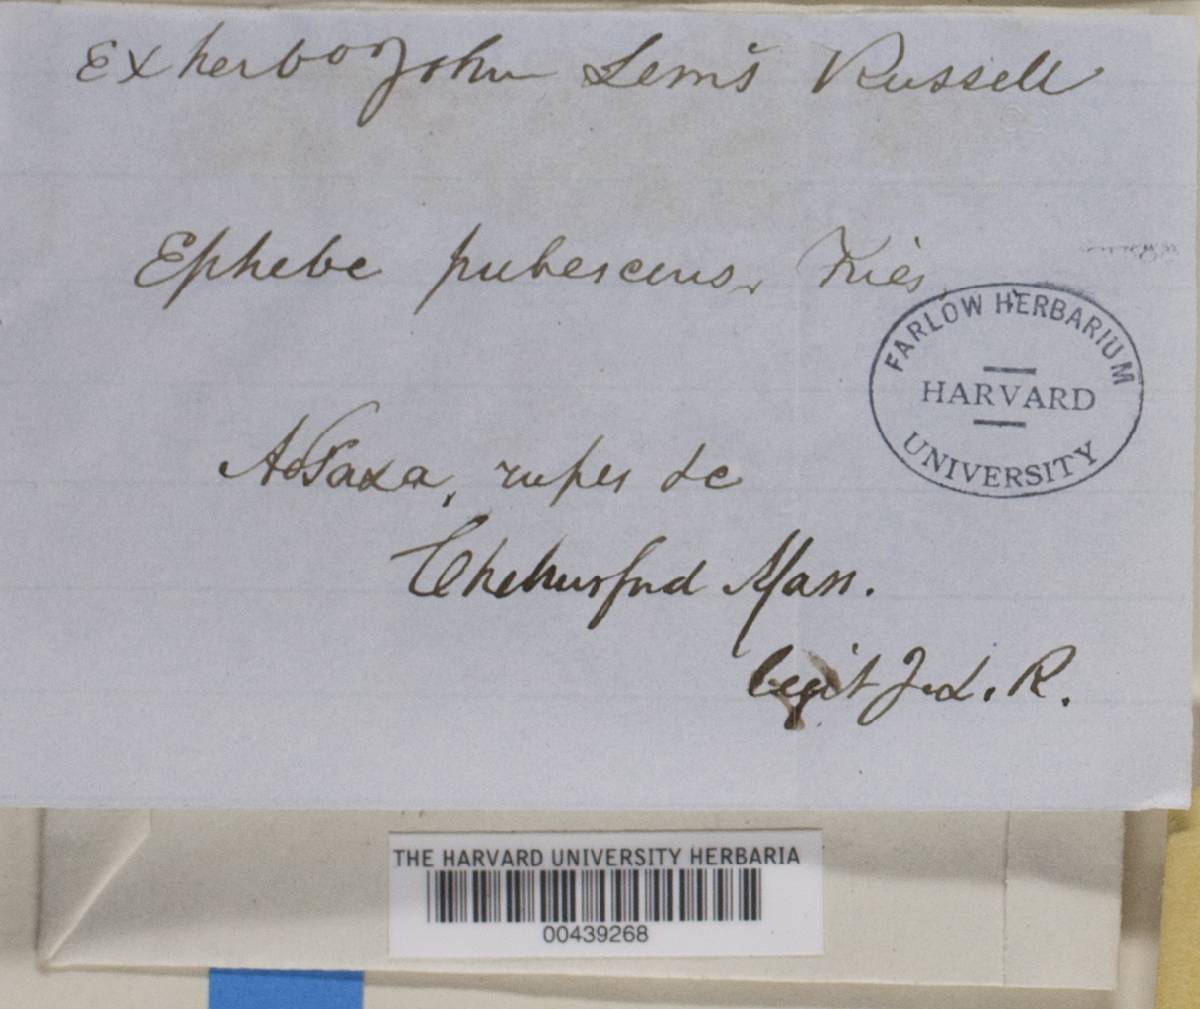 Ex herbo John Lewis Russell
Ephebe pubescens, Fries
FARLOW HERBARIUM
HARVARD
UNIVERSITY
Ad Saxa, rupes &c
Chelmsford Mass.
legit J. L. R.
THE HARVARD UNIVERSITY HERBARIA
00439268